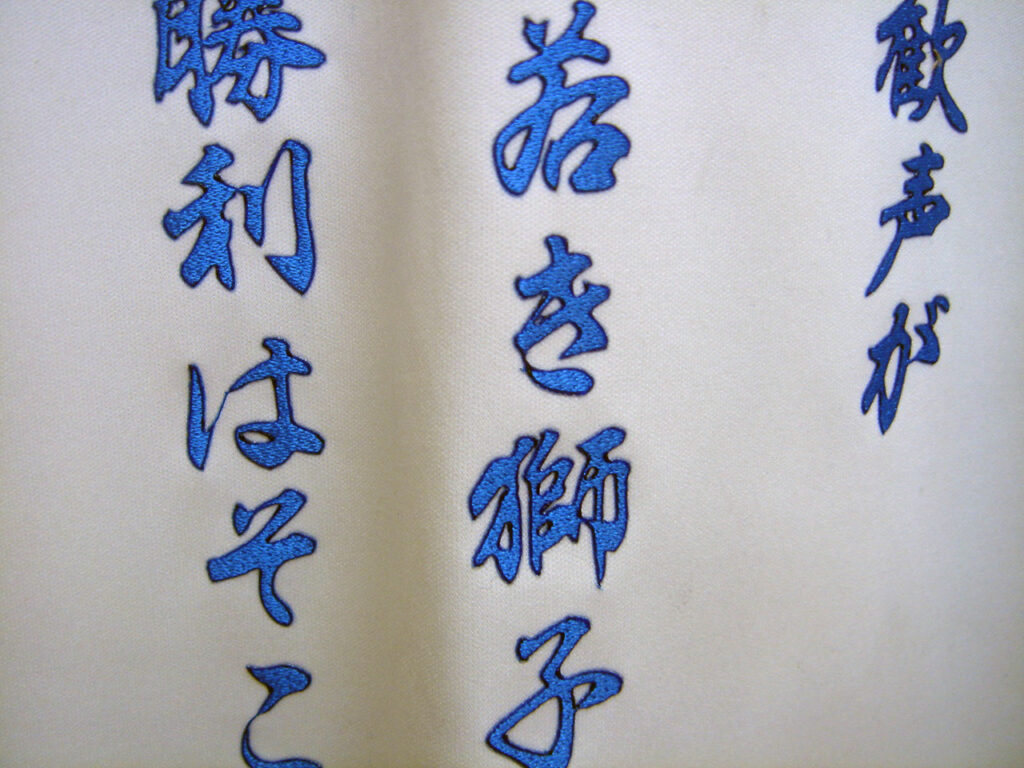 歓声が
若き獅子
勝利はそこ